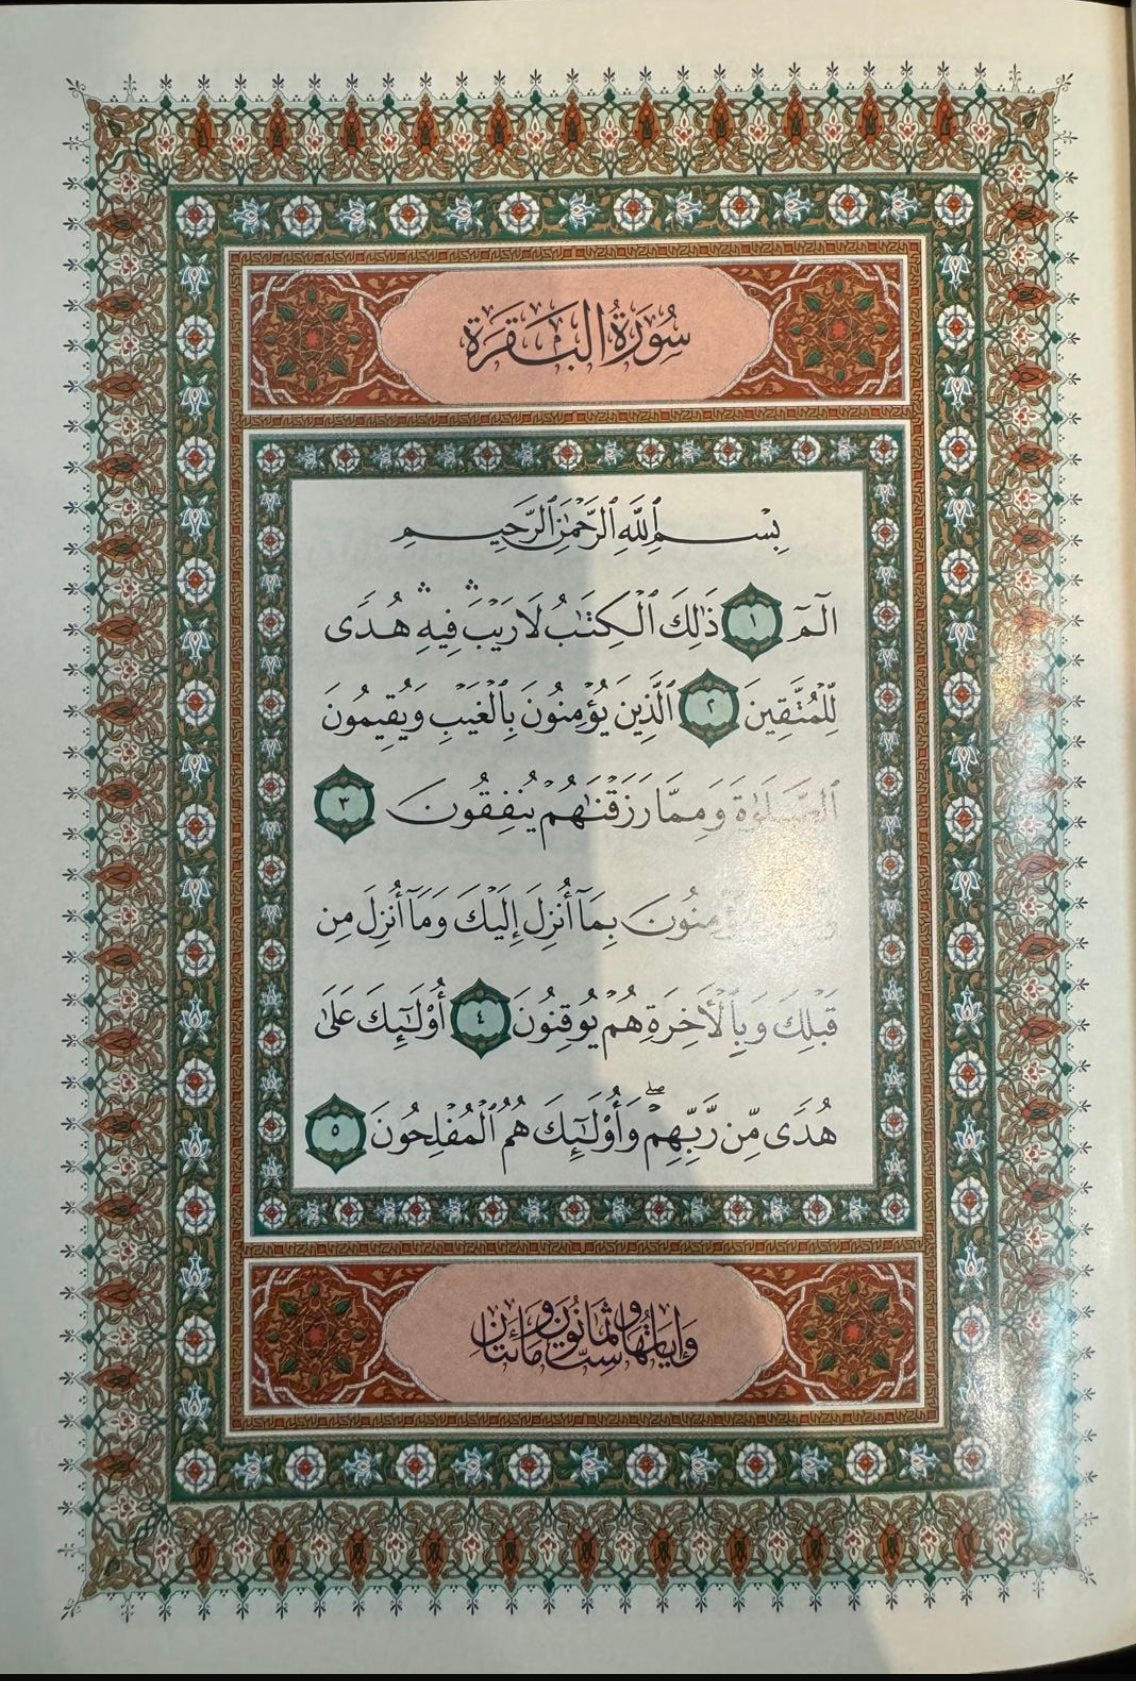 سُورَةُ البَقَرَةِ
بِسْمِ ٱللَّهِ ٱلرَّحْمَٰنِ ٱلرَّحِيمِ
الٓمٓ ١ ذَٰلِكَ ٱلْكِتَٰبُ لَا رَيْبَ ۛ فِيهِ ۛ هُدًى
لِّلْمُتَّقِينَ ٢ ٱلَّذِينَ يُؤْمِنُونَ بِٱلْغَيْبِ وَيُقِيمُونَ
ٱلصَّلَوٰةَ وَمِمَّا رَزَقْنَٰهُمْ يُنفِقُونَ ٣
بِمَآ أُنزِلَ إِلَيْكَ وَمَآ أُنزِلَ مِن
قَبْلِكَ وَبِٱلْأَخِرَةِ هُمْ يُوقِنُونَ ٤ أُو۟لَٰٓئِكَ عَلَىٰ
هُدًى مِّن رَّبِّهِمْ ۖ وَأُو۟لَٰٓئِكَ هُمُ ٱلْمُفْلِحُونَ ٥
وَايَاتُهَا سِتٌّ وَثَمَانُونَ وَمَائتَانِ